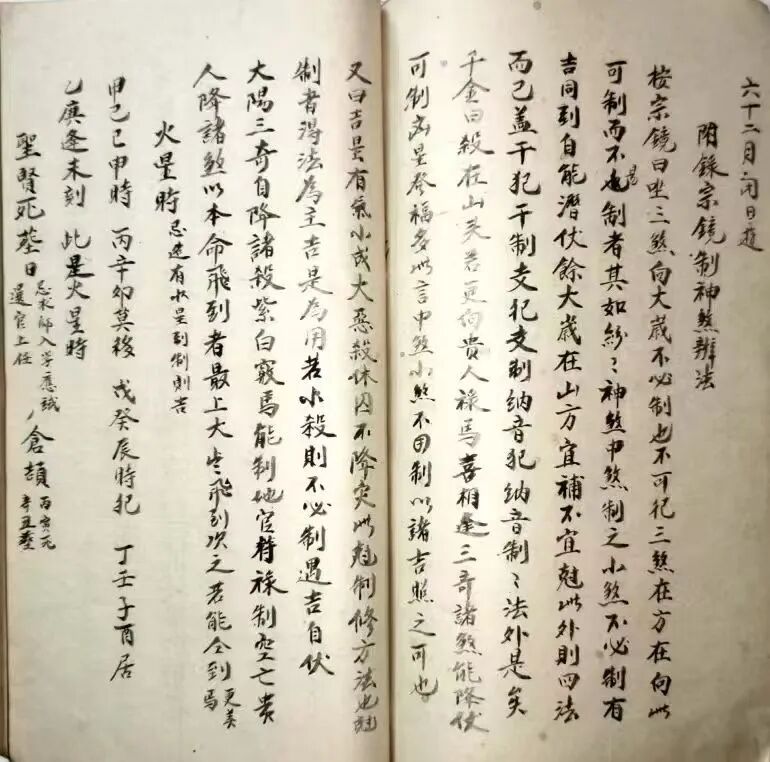 六十二月閉日遊
附錄宗鏡制神煞辨法
按宗鏡曰坐三煞向大歲不必制也不可犯三煞在方在向此
可制而不易制者其如紛〻神煞中煞制之小煞不必制有
吉同到自能潛伏餘大歲在山方宜補不宜尅此外則四法
而已盖干犯干制支犯支制納音犯納音制〻法外是矣
千金曰殺在山头若更向貴人祿馬喜相逢三奇諸煞能降伏
可制凶星發福多此言中煞小煞不用制以諸吉照之可也
又曰吉星有氣小成大惡殺休囚不降灾此尅制修方法也尅
制者得法為主吉是為用若小殺則不必制遇吉自伏
大陽三奇自降諸殺紫白竅馬能制地官符祿制空亡貴
人降諸煞以本命飛到者最上大歲飛到次之若能仝到更美
馬
火星時 忌 有水星到制則吉
甲己巳申時 丙辛卯莫移 戊癸辰時犯 丁壬子酉居
乙庚逢未刻 此是火星時
聖賢死葬日 忌求師入學應試
選官上任 倉頡 丙寅死
辛丑葬